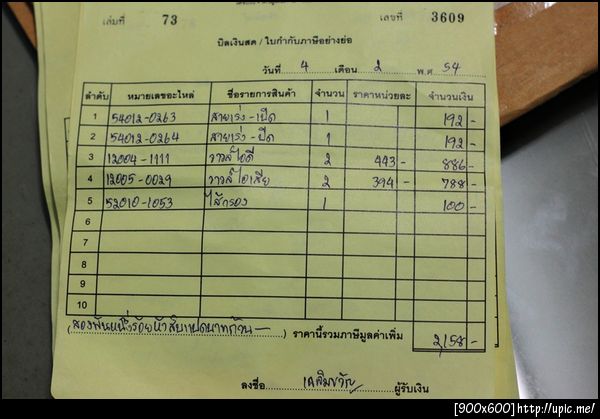 เล่มที่ 73 เลขที่ 3609
บิลเงินสด / ใบกำกับภาษีอย่างย่อ
วันที่ 4 เดือน 2 พ.ศ 54
ลำดับ หมายเลขอะไหล่ ชื่อรายการสินค้า จำนวน ราคาหน่วยละ จำนวนเงิน
1 54012-0263 สายเร่ง-เปิด 1 192 -
2 54012-0264 สายเร่ง-ปิด 1 192 -
3 12004-1111 วาวล์ไอดี 2 443 - 886 -
4 12005-0029 วาวล์ไอเสีย 2 394 - 788 -
5 52010-1053 ไส้กรอง 1 100 -
6
7
8
9
10
(สองพันหนึ่งร้อยห้าสิบแปดบาทถ้วน) ราคานี้รวมภาษีมูลค่าเพิ่ม 2,158 -
ลงชื่อ ผู้รับเงิน
[900x600]http://upic.me/